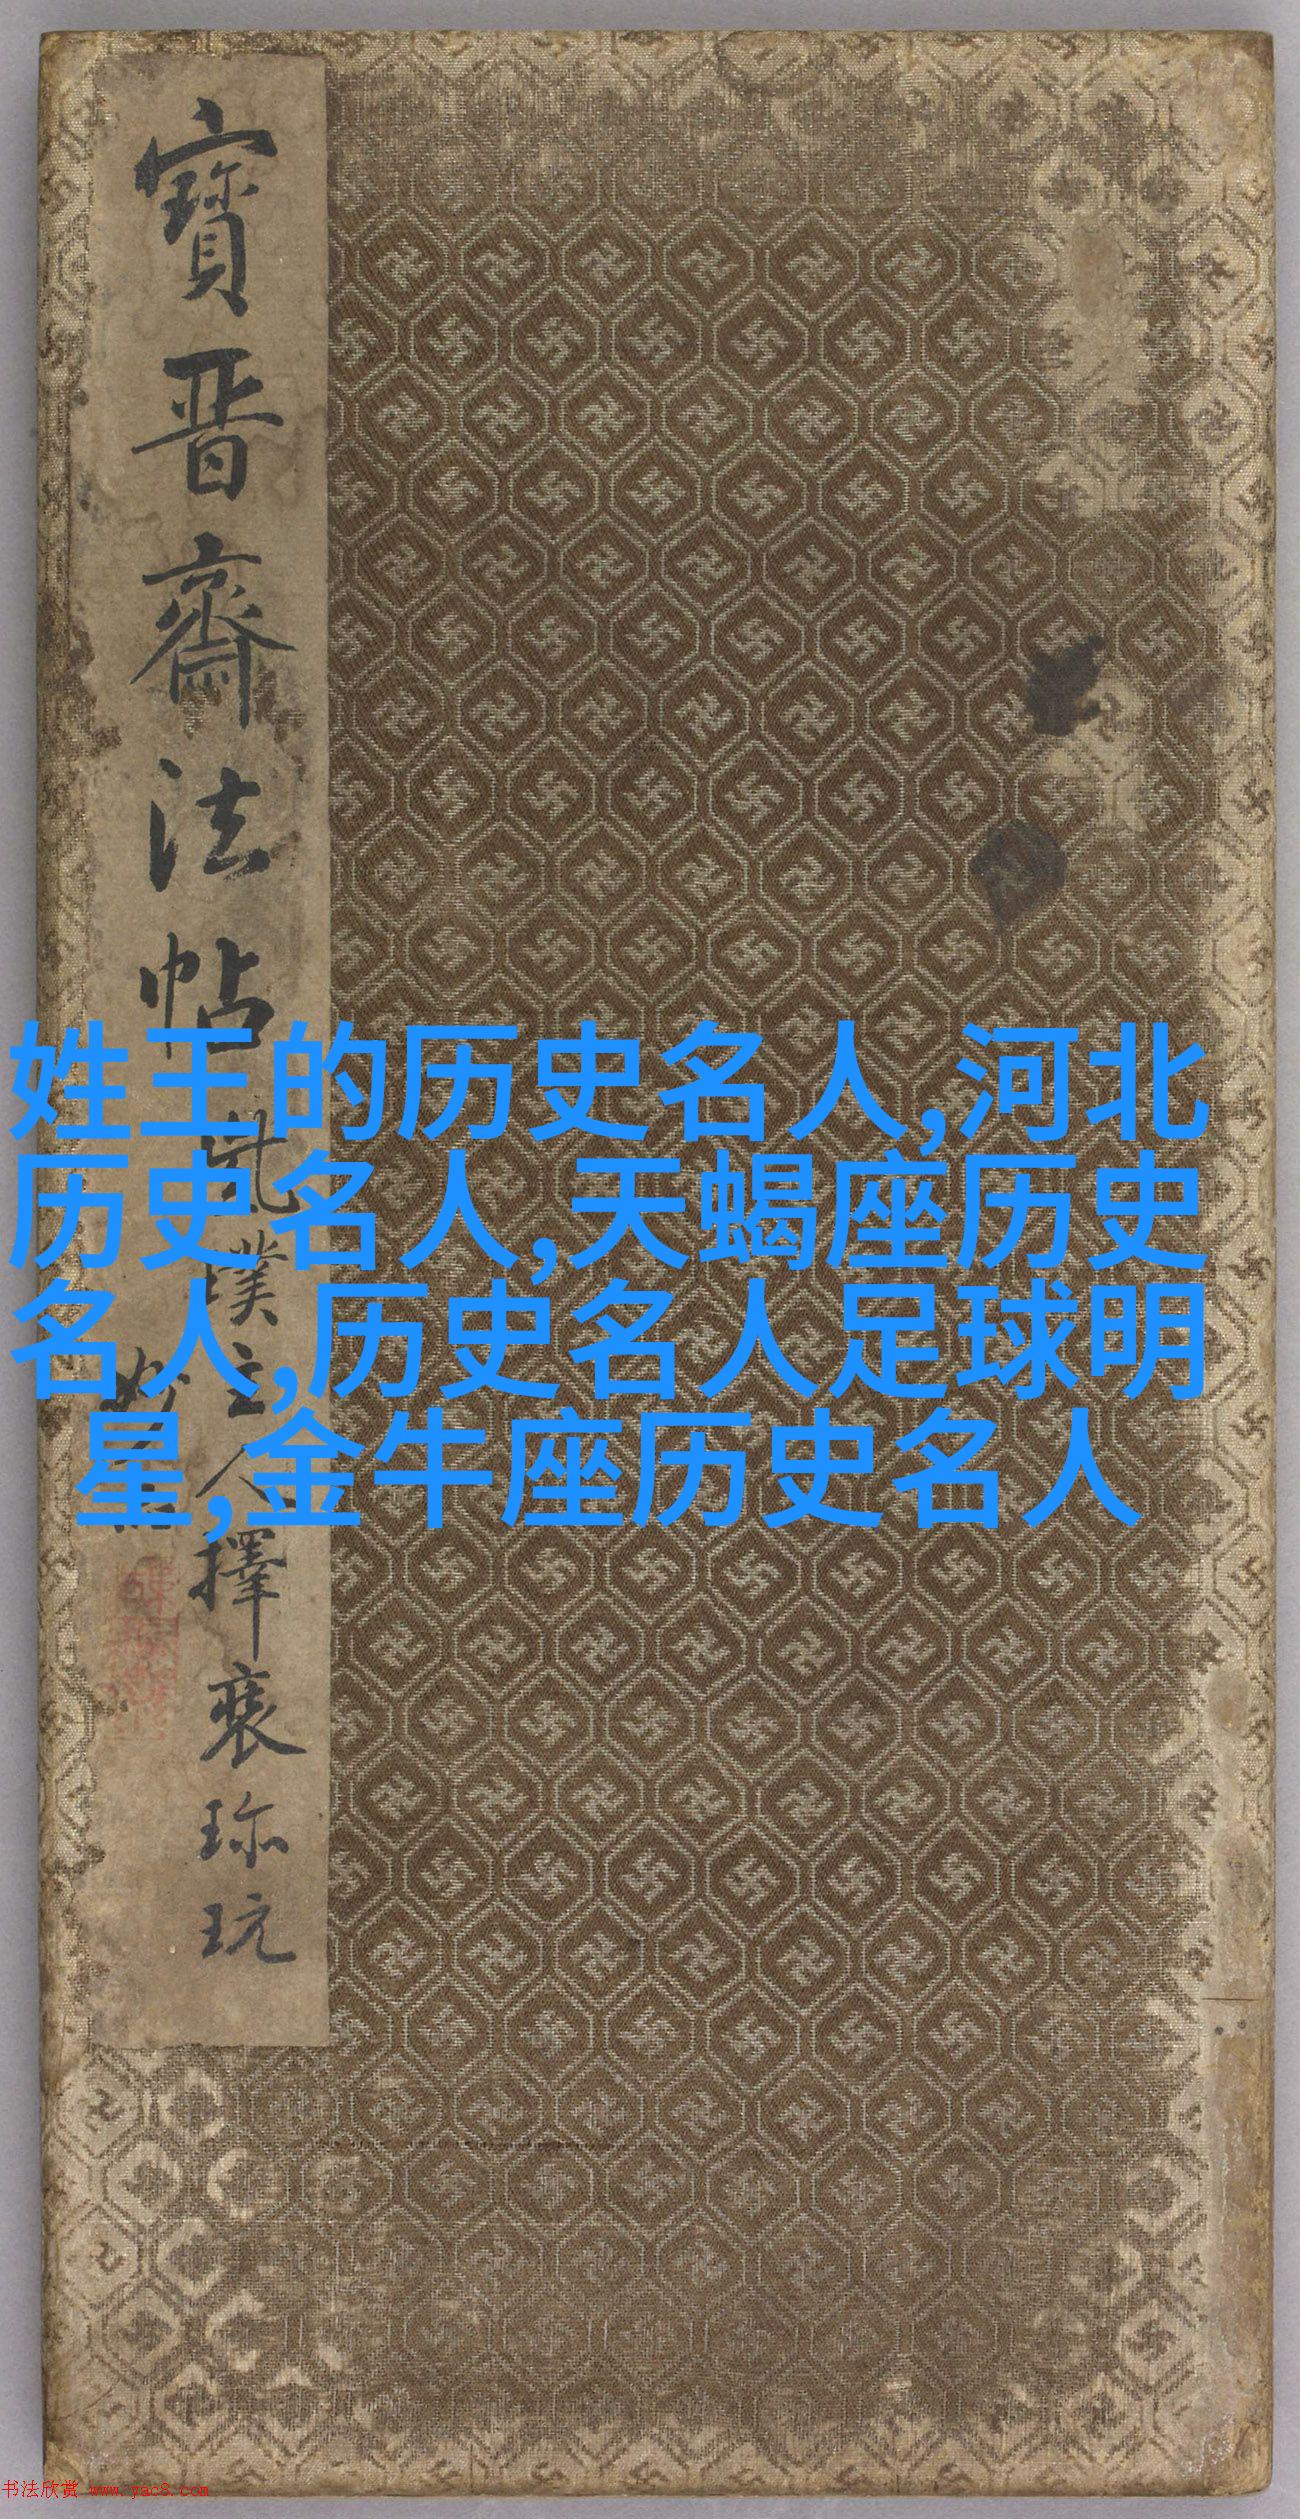 寶晋齋法帖
主人擇裘珎玩
姓王的历史名人,河北
历史名人,天蝎座历史
名人,历史名人足球明
星,金牛座历史名人
书法欣赏 www.yac8.com